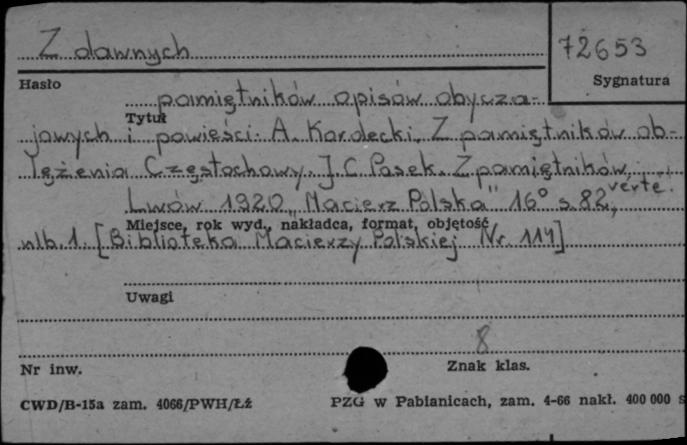 Z dawnych
72653
Hasło
Sygnatura
pamiętników opisów obycza-
Tytuł
jowych i powieści. A. Kordecki. Z pamiętników ob-
lężenia Częstochowy. J. C. Pasek. Z pamiętników,
verte.
Lwów 1920 „Macierz Polska" 16° s. 82,
Miejsce, rok wyd., nakładca, format, objętość
nlb. 1 [Biblioteka Macierzy Polskiej Nr. 114]
Uwagi
8
Nr inw.
Znak klas.
CWD/B-15a zam. 4066/PWH/Łż
PZG w Pabianicach, zam. 4-66 nakł. 400 000 s